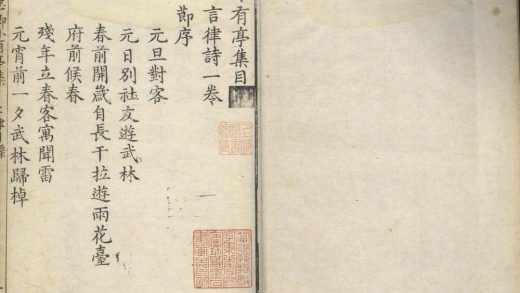 有亭集目
言律詩一卷
節序
元旦對客
元日別社友遊武林
春前開歲自長干拉遊雨花臺
府前候春
殘年立春客寓聞雷
元宵前一夕武林歸棹